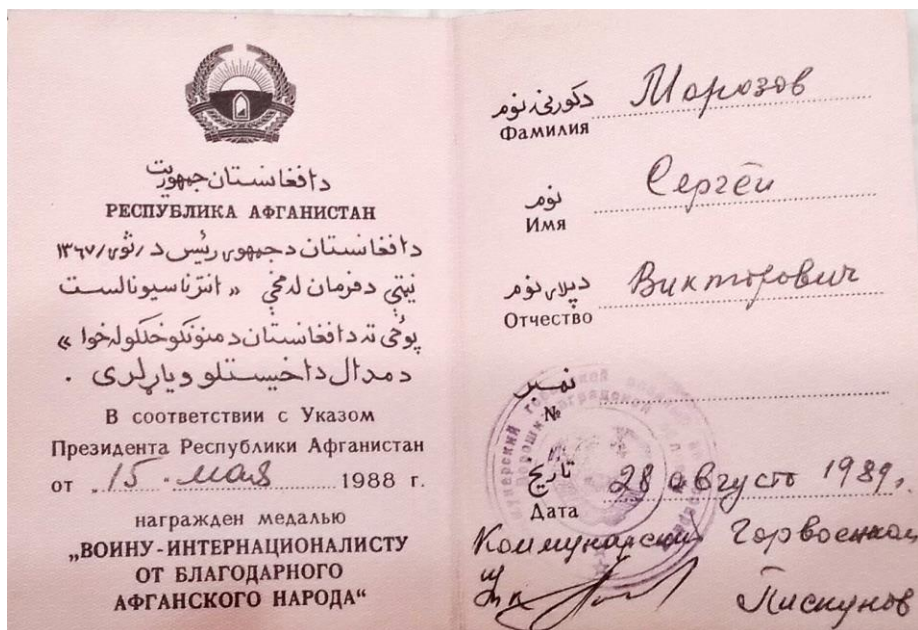 دافغانستان جمهوریت
РЕСПУБЛИКА АФГАНИСТАН
دافغانستان دجمهوری رئیس د /ثور/ ۱۳۶۷
نیټې دفرمان له مخې « انترناسیونالست
پوځی ته دافغانستان د منونکو خلکو له خوا »
د مدال داخیستلو ویاړ لری .
В соответствии с Указом
Президента Республики Афганистан
от 15 мая 1988 г.
награжден медалью
„ВОИНУ-ИНТЕРНАЦИОНАЛИСТУ
ОТ БЛАГОДАРНОГО
АФГАНСКОГО НАРОДА“
دکورنۍ نوم Морозов
Фамилия
نوم Сергей
Имя
دپلار نوم Викторович
Отчество
نمبر
№
تاریخ 28 августа 1989г.
Дата
Коммунарский Горвоенком
Пискунов